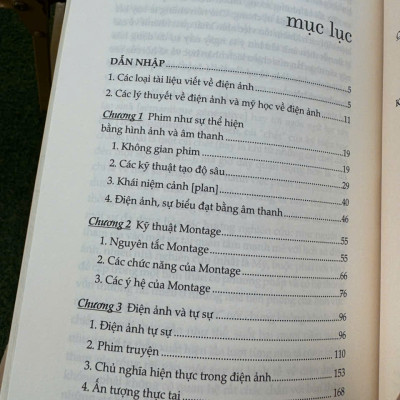 mục lục
DẪN NHẬP ........ 5
1. Các loại tài liệu viết về điện ảnh ........ 5
2. Các lý thuyết về điện ảnh và mỹ học về điện ảnh ........ 11
Chương 1 Phim như sự thể hiện
bằng hình ảnh và âm thanh ........ 19
1. Không gian phim ........ 19
2. Các kỹ thuật tạo độ sâu ........ 29
3. Khái niệm cảnh [plan] ........ 40
4. Điện ảnh, sự biểu đạt bằng âm thanh ........ 46
Chương 2 Kỹ thuật Montage ........ 55
1. Nguyên tắc Montage ........ 55
2. Các chức năng của Montage ........ 66
3. Các ý hệ của Montage ........ 76
Chương 3 Điện ảnh và tự sự ........ 96
1. Điện ảnh tự sự ........ 96
2. Phim truyện ........ 110
3. Chủ nghĩa hiện thực trong điện ảnh ........ 153
4. Ấn tượng thực tại ........ 168